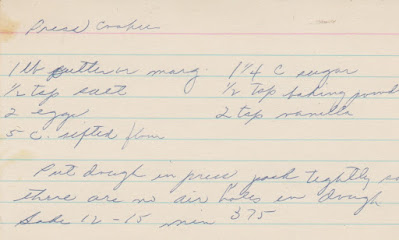 Press Cookie
1 lb butter or marg. 1 1/4 c sugar
1/2 tsp salt 1/2 tsp baking powd
2 eggs 2 tsp vanilla
5 c. sifted flour
Put dough in press pack tightly so
there are no air holes in dough
Bake 12-15 min 375